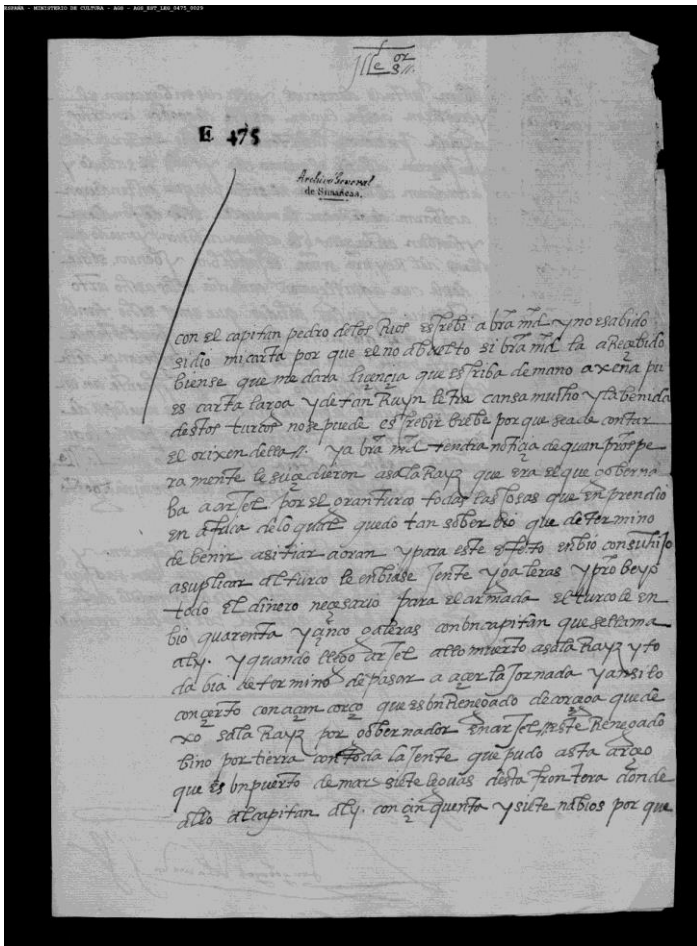 ESPAÑA - MINISTERIO DE CULTURA - AGS - AGS_EST_LEG_0475_0029
Ille or
S.
E 475
Archivo General
de Simancas.
con el capitan pedro de los Rios escrebi a bra md y no e sabido
si dio mi carta por que el no a buelto si bra md la a Recebido
biense que me dara licençia que escriba de mano axena pu
es carta larga y de tan Ruyn letra cansa mucho y la benida
destos turcos no se puede escrebir brebe por que sea de contar
el orixen della //. ya bra md tendra noticia de quan prospe
ramente le sucedieron a sala Rayz que era el que goberna
ba a arjel por el gran turco todas las cosas que enprendio
en africa de lo qual quedo tan soberbio que determino
de benir a sitiar a oran y para este efeto enbio con su hijo
a suplicar al turco le enbiase jente y galeras y probeyo
todo el dinero necesario para el armada el turco le en
bio quarenta y cinco galeras con bn capitan que se llama
aly. y quando llego arjel allo muerto a sala Rayz y to
da bia determino de pasar a açer la jornada y ansi lo
conçerto con açan corço que es bn Renegado de corçega que de
xo sala Rayz por gobernador en arjel // este Renegado
bino por tierra con toda la jente que pudo asta arzeo
que es bn puerto de mar siete leguas desta frontera donde
allo al capitan aly. con çinquenta y siete nabios por que